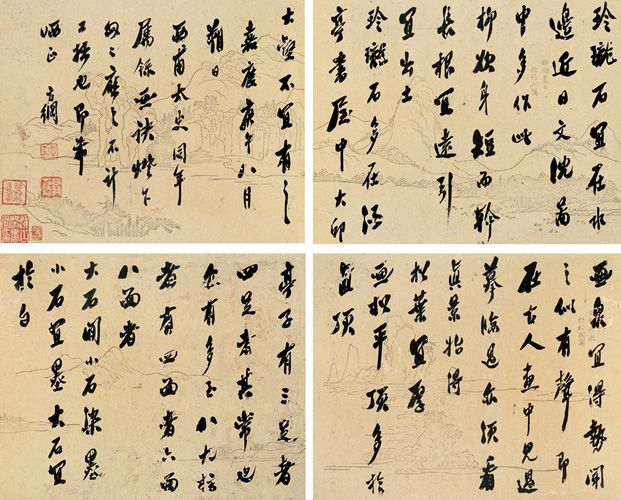 玲瓏石宜在水
邊近日文沈圖
中多作此
柳欲身短而幹
長根宜遠引
宜出土
玲瓏石多在
亭書屋中大
大壑不宜有之
嘉慶庚午八月
朔日
酉甫太史同年
屬錄畫訣燈下
匆匆應之不計
工拙也即希
哂正 方綱
畫泉宜得勢聞
之似有聲即
在古人畫中見過
摹臨過亦須看
真景始得
松葉宜厚
畫松平頂多於
直頂
亭子有三足者
四足者其常也
亦有多至八九柱
者有四面者六面
八面者
大石間小石染墨
小石宜墨大石宜
於白